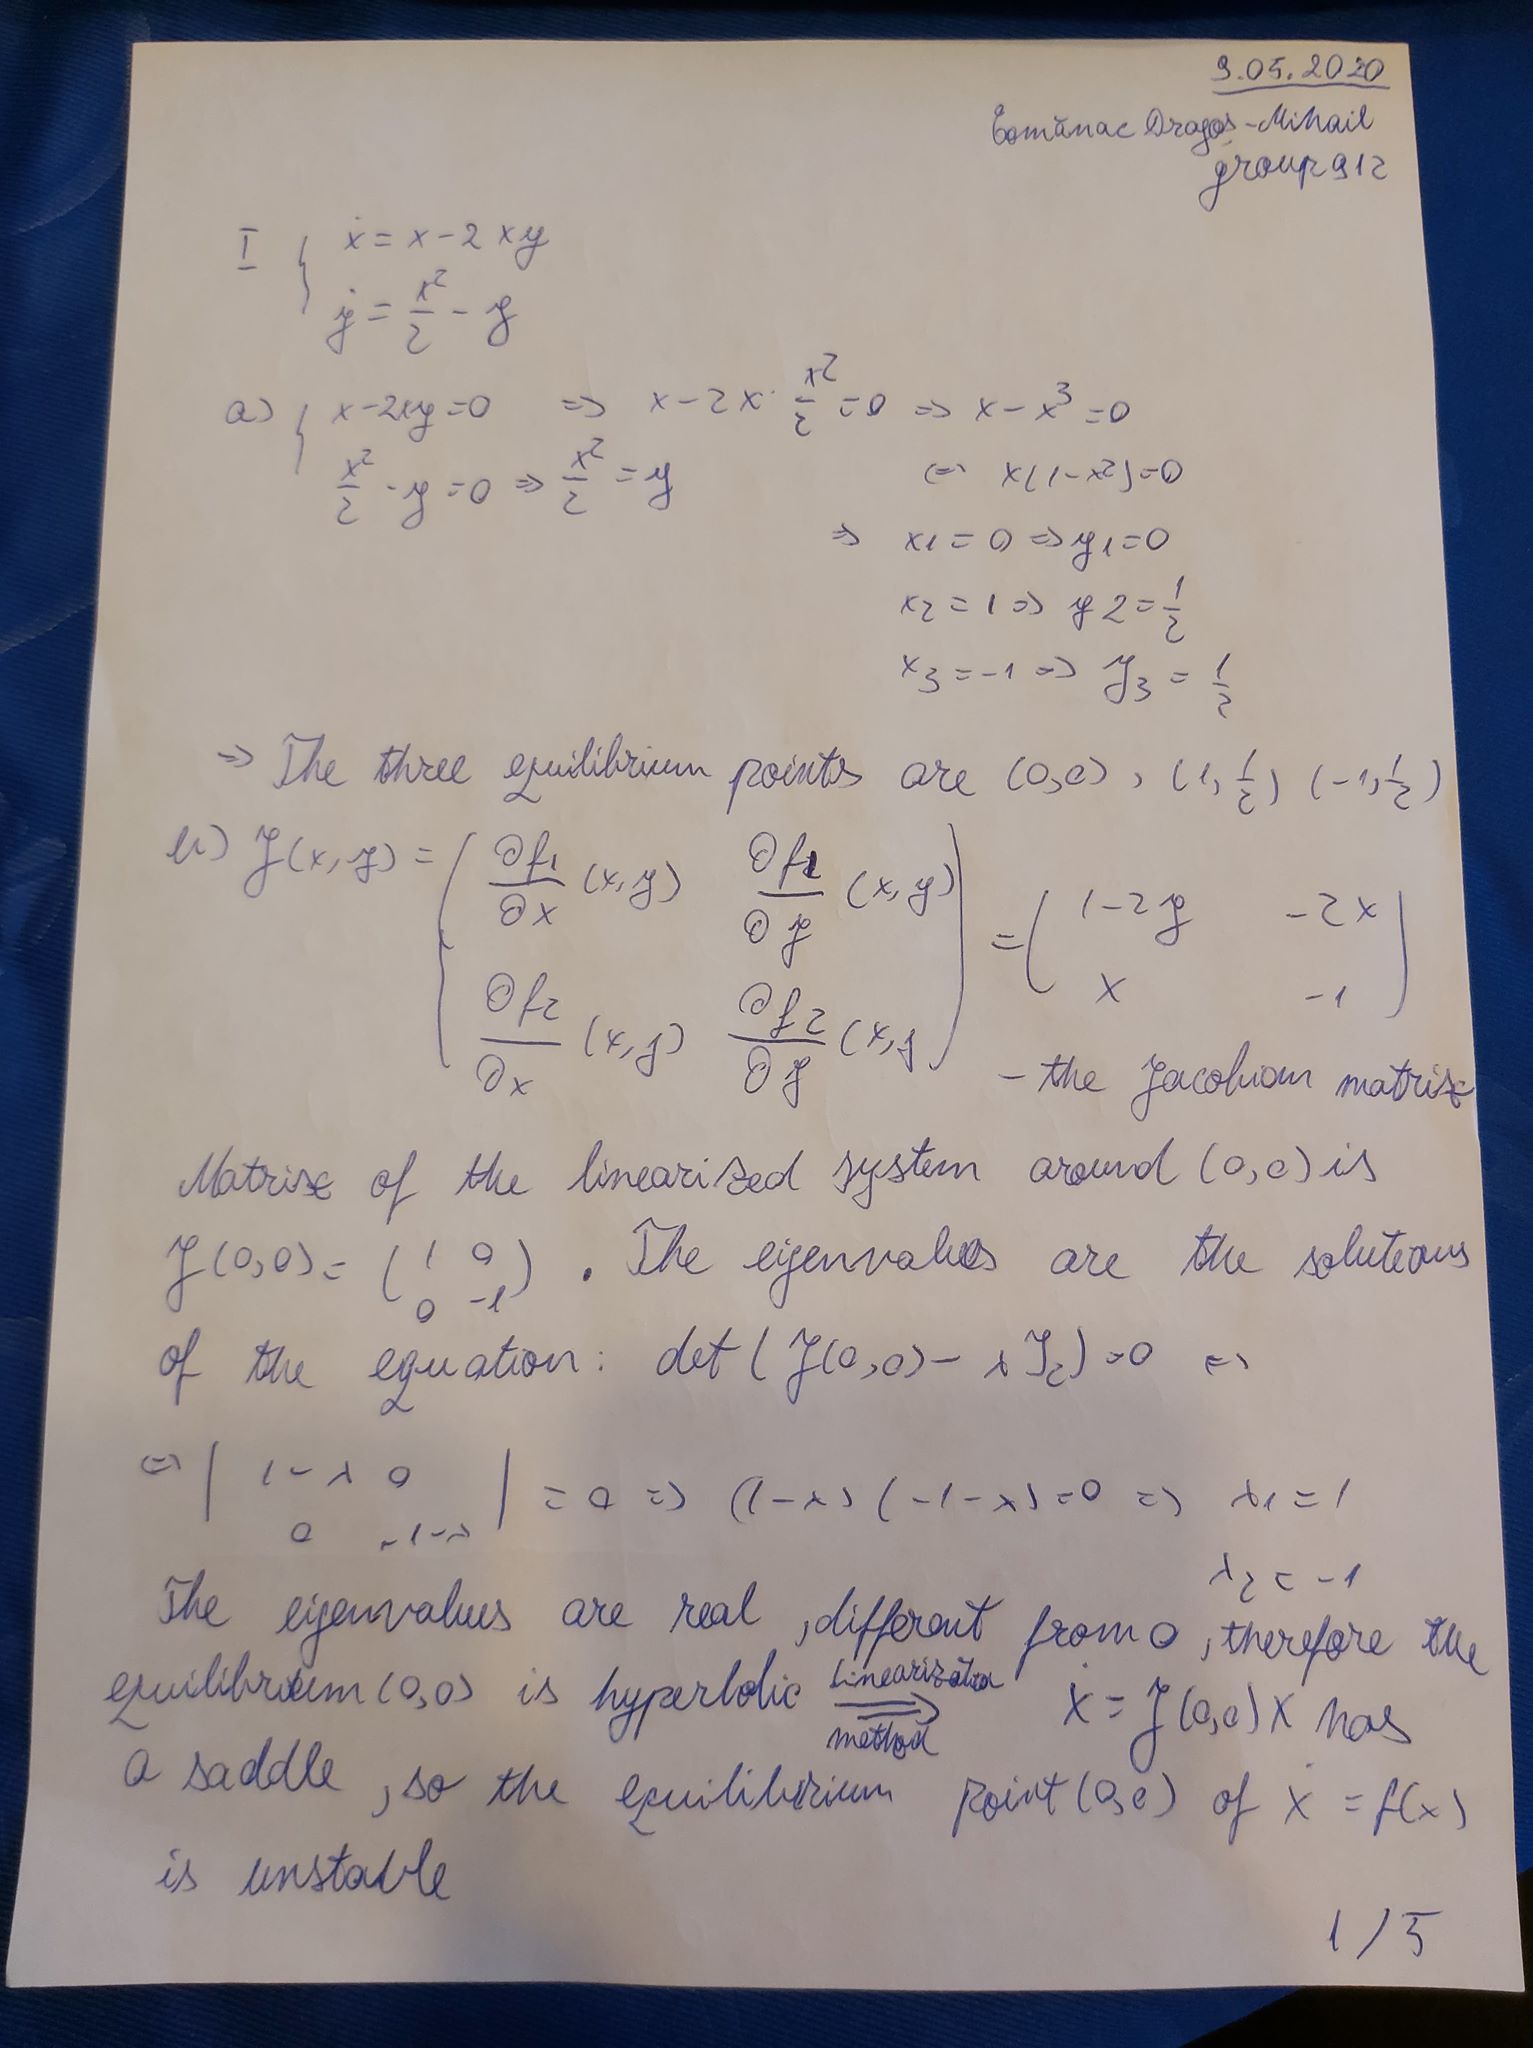 9.05.2020
Comănac Dragoș-Mihail
group 912
I { ẋ = x - 2xy
ẏ = x²/2 - y
a) { x - 2xy = 0 => x - 2x · x²/2 = 0 => x - x³ = 0
x²/2 - y = 0 => x²/2 = y <=> x(1-x²) = 0
=> x1 = 0 => y1 = 0
x2 = 1 => y2 = 1/2
x3 = -1 => y3 = 1/2
=> The three equilibrium points are (0,0), (1, 1/2) (-1, 1/2)
b) J(x,y) = ( ∂f1/∂x (x,y) ∂f1/∂y (x,y) = ( 1-2y -2x
∂f2/∂x (x,y) ∂f2/∂y (x,y ) x -1 )
- the Jacobian matrix
Matrix of the linearized system around (0,0) is
J(0,0) = ( 1 0
0 -1 ) . The eigenvalues are the solutions
of the equation: det(J(0,0) - λI2) = 0 <=>
<=> | 1-λ 0
0 -1-λ | = 0 => (1-λ)(-1-λ) = 0 => λ1 = 1
λ2 = -1
The eigenvalues are real, different from 0, therefore the
equilibrium (0,0) is hyperbolic linearization method => Ẋ = J(0,0)X has
a saddle, so the equilibrium point (0,0) of Ẋ = f(x)
is unstable
1/5